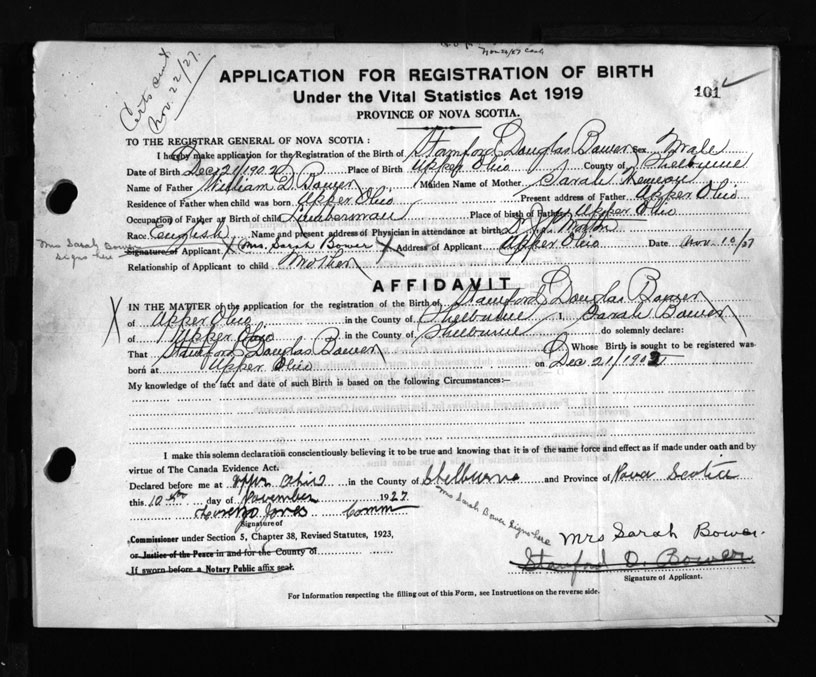 Certs sent
Nov. 22/27.
Nov 22/27 Cash
APPLICATION FOR REGISTRATION OF BIRTH
Under the Vital Statistics Act 1919
101
PROVINCE OF NOVA SCOTIA.
TO THE REGISTRAR GENERAL OF NOVA SCOTIA :
I hereby make application for the Registration of the Birth of Stanford Douglas Bower Sex Male
Date of Birth Dec 21/1902 Place of Birth Upper Ohio County of Shelburne
Name of Father William E. Bower Maiden Name of Mother Sarah
Residence of Father when child was born Upper Ohio Present address of Father Upper Ohio
Occupation of Father at Birth of child Lumberman Place of birth of Father Upper Ohio
Race English Name and present address of Physician in attendance at birth
Mrs Sarah Bower
signs here
Signature of Applicant X Mrs. Sarah Bower X Address of Applicant Upper Ohio Date Nov. 10/27
Relationship of Applicant to child Mother
AFFIDAVIT
X IN THE MATTER of the application for the registration of the Birth of Stanford Douglas Bower
of Upper Ohio in the County of Shelburne I, Sarah Bower
of Upper Ohio in the County of Shelburne do solemnly declare:
That Stanford Douglas Bower Whose Birth is sought to be registered was
born at Upper Ohio on Dec 21/1902
My knowledge of the fact and date of such Birth is based on the following Circumstances:—
I make this solemn declaration conscientiously believing it to be true and knowing that it is of the same force and effect as if made under oath and by
virtue of The Canada Evidence Act.
Declared before me at Upper Ohio in the County of Shelburne and Province of Nova Scotia
this 10th day of November 1927
Mrs Sarah Bower signs here
Lorenzo Jones Comm
Signature of
Commissioner under Section 5, Chapter 38, Revised Statutes, 1923,
Mrs Sarah Bower.
or Justice of the Peace in and for the County of
Stanford D. Bower
If sworn before a Notary Public affix seal.
Signature of Applicant.
For Information respecting the filling out of this Form, see Instructions on the reverse side.